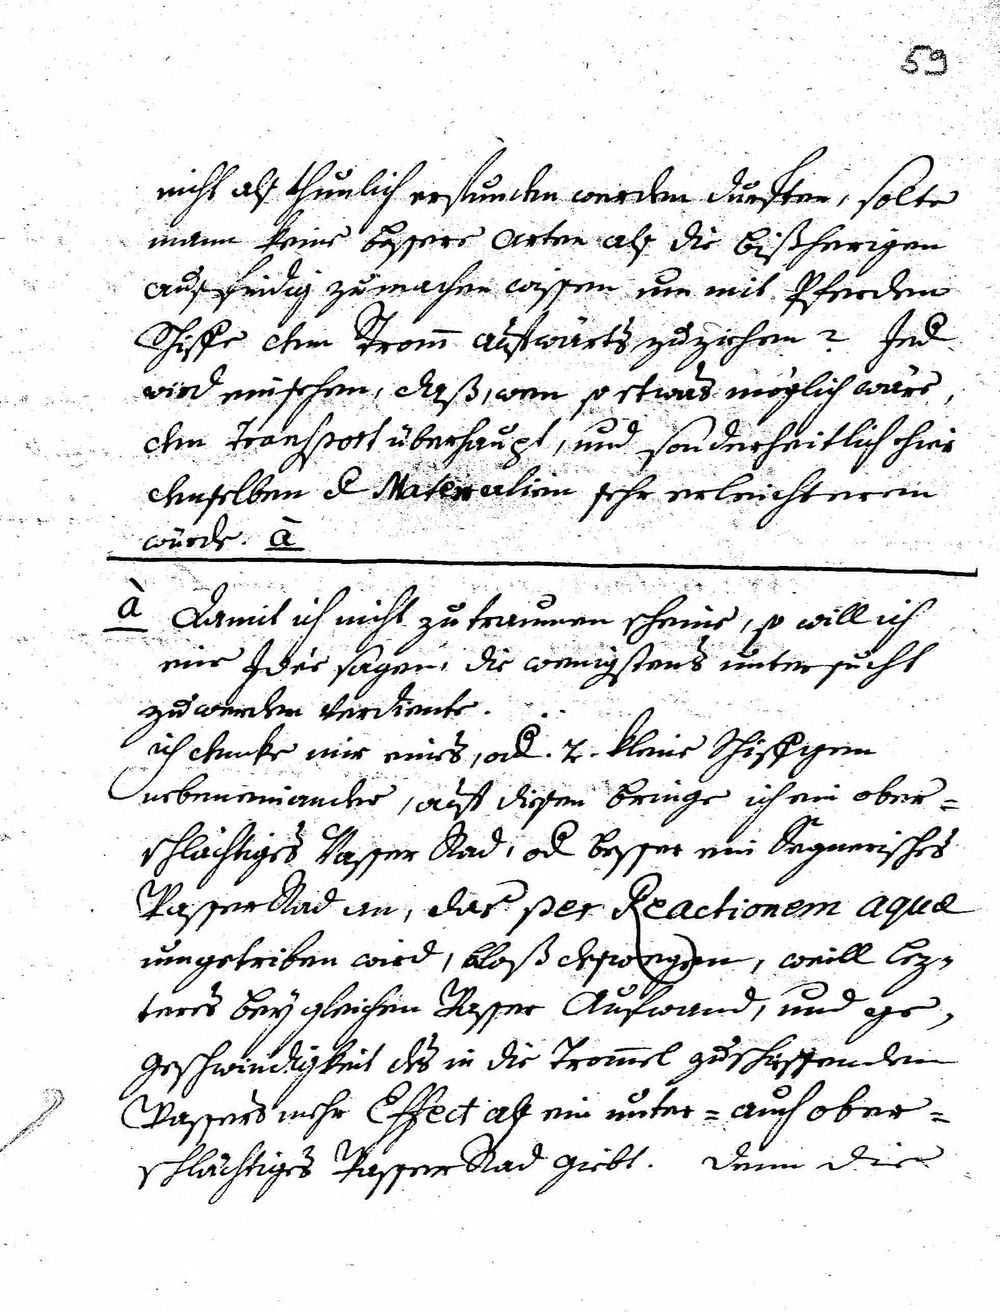 59
nicht als thunlich erfunden werden durften, solte
mann keine bessere Arten als die bißherigen
ausfindig zu machen wissen um mit Pferden
Schiffe dem Strom aufwärts zu ziehen? Jed
wird einsehen, daß, wen so etwas möglich wäre,
den Transport überhaupt, und sonderheitlich hier
denselben d Materialien sehr erleichteren
würde. à
à Damit ich nicht zu traumen scheine, so will ich
eine Idée sagen, die wenigstens untersucht
zu werden verdiente.
ich denke mir eines, od. 2. kleine Schiffgen
nebeneinander, auf diesen bringe ich ein ober=
schlächtiges Wasser Rad, od besser ein Segnerisches
Wasser Rad an, das per Reactionem aquæ
umgetriben wird, bloß deswegen, weill lez=
teres bey gleichen Wasser Aufwand, und ge=
geschwindigkeit des in die Trommel zuschiessenden
Wassers mehr Effect als ein unter= auch ober=
schlächtiges Wasser Rad giebt. Denn die